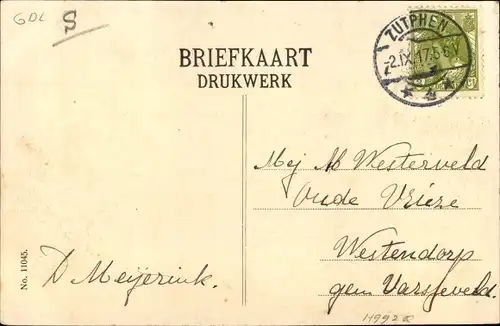 GDL
S
BRIEFKAART
DRUKWERK
ZUTPHEN
2.IX.17.5-6V
Mej Ab Westerveld
Oude Vrieze
Westendorp
gem Varsseveld.
D Meijerink.
No. 11045.